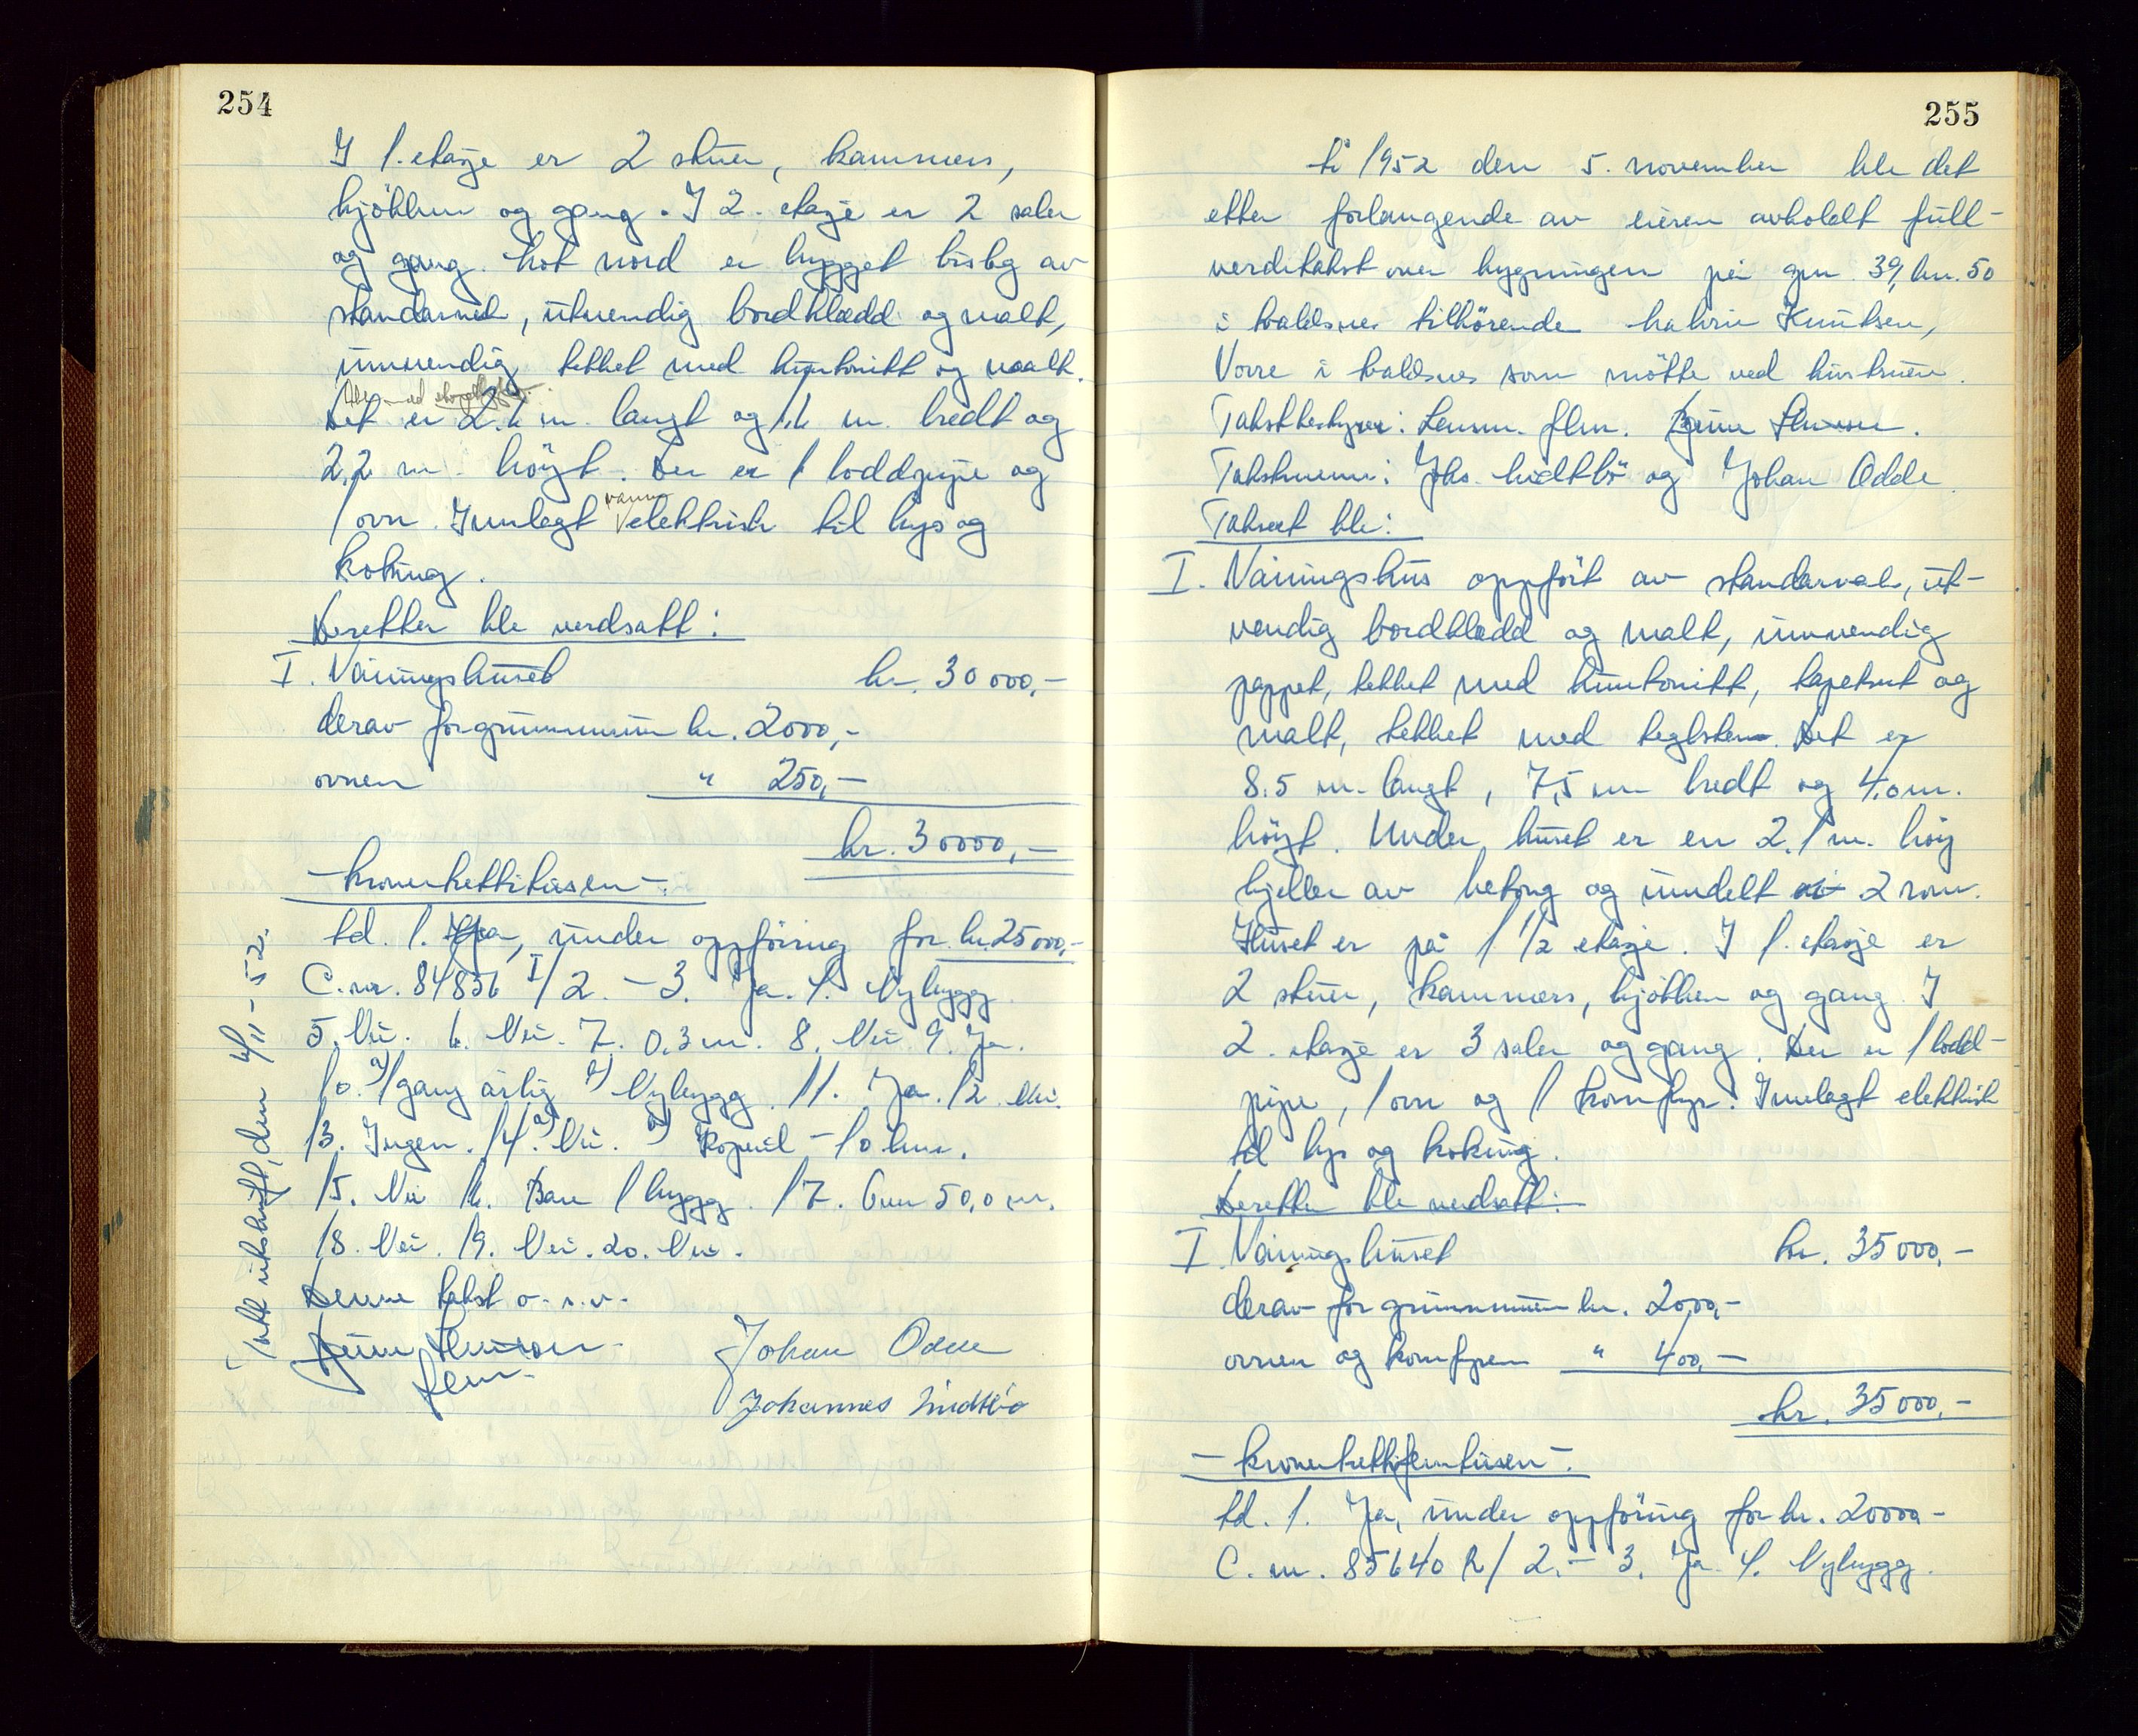 254
I 1. etasje er 2 stuer, kammers,
kjökken og gang. I 2. etasje er 2 saler
og gang. Mot nord er bygget bislag av
standarverk, utvendig bordklædd og malt,
innvendig tekket med huntonitt og malt.
Det er 2.6 m. langt og 1,6 m. bredt og
2,2 m. höyt. Der er 1 loddpipe og
1 ovn. Innlagt vann elektrisk til lys og
koking.
Deretter ble verdsatt:
I. Våningshuset kr. 30000,-
derav for grunnmuren kr. 2000,-
ovnen " 250,-
kr. 30000,-
-Branntakstinstruksen-.
td. 1. Ja, under oppföring for kr. 25000,-
C. nr. 84836 I/ 2. - 3. Ja. 4. Nybygg
5. Nei. 6. Nei. 7. 0.3 m. 8. Nei 9. Ja.
10. a) 1 gang årlig b) Nybygg. 11. Ja. 12. Nei.
13. Ingen. 14. a) Nei. b) Kopervik - 10 km.
15. Nei 16. Bare 1 bygg. 17. Over 50,0 m.
18. Nei. 19. Nei. 20. Nei.
Denne takst o. s. v.
Johan Odde
lensm.
Johannes Midtbö
Takst utskrift, den 4/11-52.
255
År 1952 den 5. november ble det
etter forlangende av eieren avholdt full-
verditakst over bygningen på gnr. 39, bnr. 50
i Avaldsnes tilhörende Knutsen,
Vorre i Avaldsnes som mötte ved hustruen.
Takstbestyrer: Lensm. flm.
Takstmenn: Johs. Midtbö og Johan Odde.
Taksert ble:
I. Våningshus oppfört av standarverk, ut-
vendig bordklædd og malt, innvendig
pappet, tekket med huntonitt, tapetsert og
malt, tekket med teglsten. Det er
8.5 m. langt, 7,5 m bredt og 4,0 m.
höyt. Under huset er en 2.1 m. höy
kjeller av betong og inndelt i 2 rom.
Huset er på 1 1/2 etasje. I 1. etasje er
2 stuer, kammers, kjökken og gang. I
2. etasje er 3 saler og gang. Der er 1 lodd-
pipe, 1 ovn og 1 komfyr. Innlagt elektrisk
til lys og koking.
Deretter ble verdsatt:
I Våningshuset kr. 35000,-
derav for grunnmuren kr. 2000,-
ovnen og komfyren " 400,-
kr. 35000,-
-Branntakstinstruksen-.
td. 1. Ja, under oppföring for kr. 20000-
C. nr. 85640 R/ 2. - 3. Ja. 4. Nybygg.